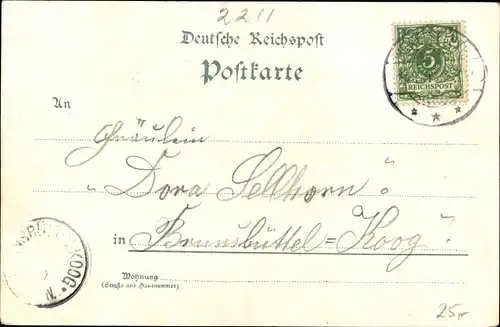 2211
Deutsche Reichspost
Postkarte
5
REICHSPOST
An
Fräulein
„Dora Sellhorn“
in Brunsbüttel=Koog
KOOG
Wohnung
(Straße und Hausnummer)
25,-